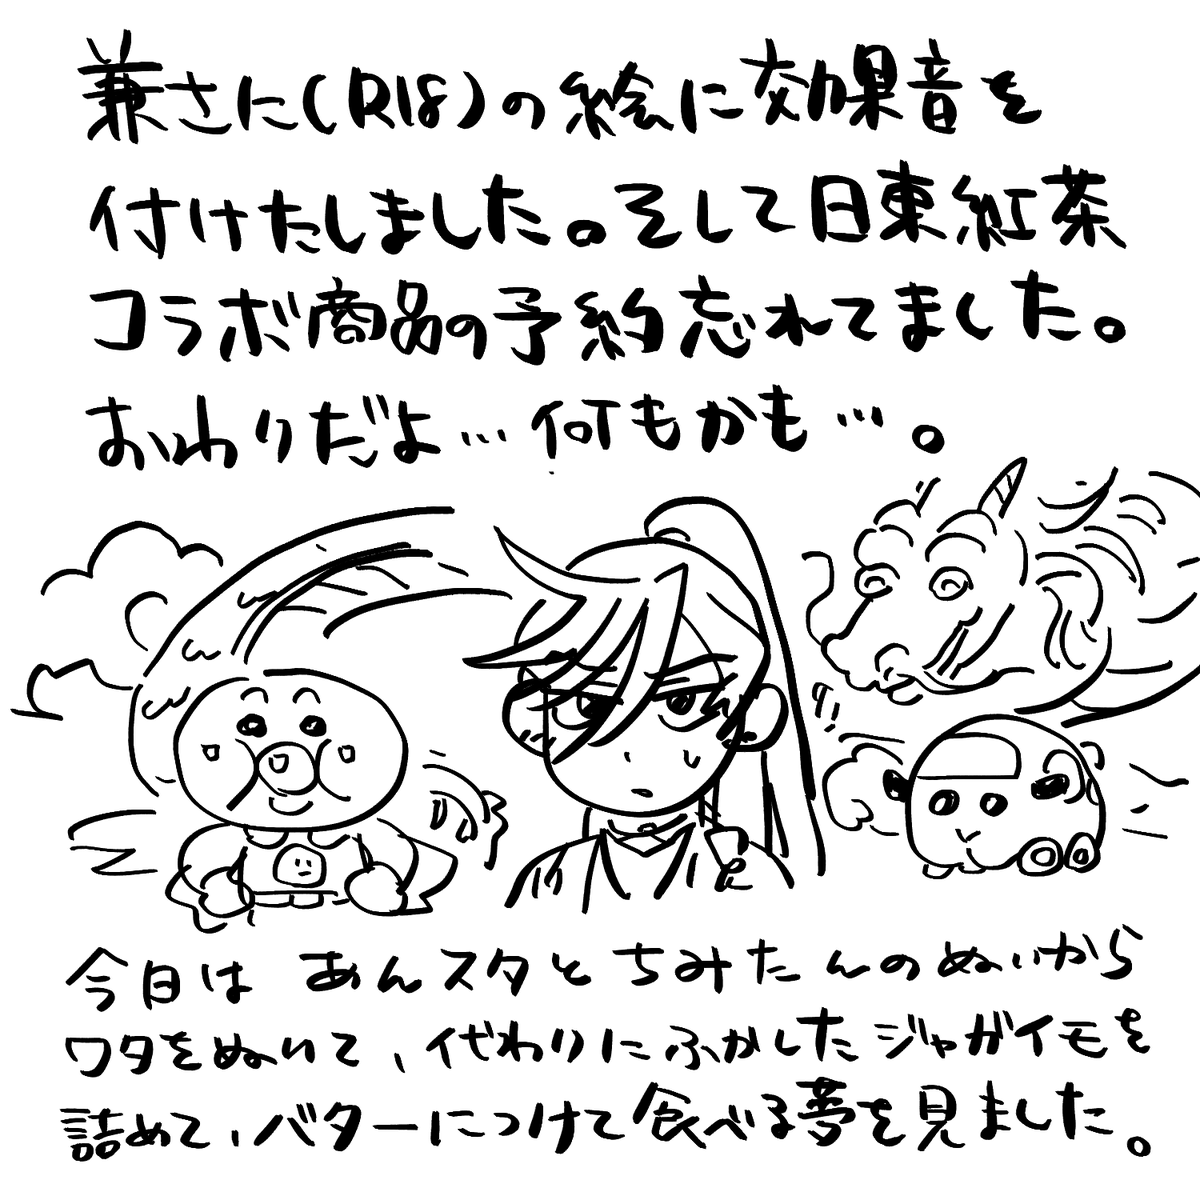 兼さに(R18)の絵に効果音を
付けたしました。そして日東紅茶
コラボ商品の予約忘れてました。
おいわりだよ…何もかも…。
今日は あんスタとちみたんのぬいから
ワタをぬいて、代わりにふかしたジャガイモを
詰めて、バターにつけて食べる夢を見ました。